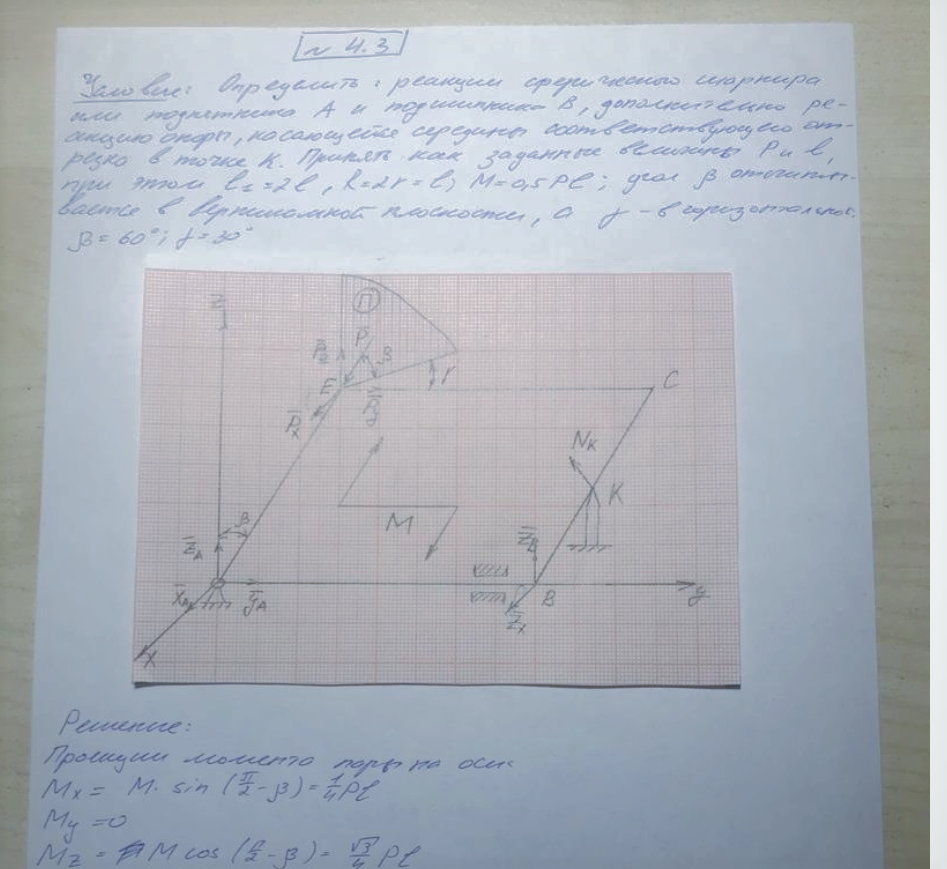 ~ 4.3
Условие: Определить: реакции сферического шарнира
или подпятника А и подшипника В, дополнительно ре-
акцию опоры, касающейся середины соответствующего от-
резка в точке К. Принять как заданные величины P и l,
при этом l₁=2l, R=2r=l; M=0,5Pl; угол β отсчиты-
вается в вертикальной плоскости, а γ - в горизонтальной.
β=60°; γ=30°
z
П
P̄
P̄z
β
E
γ
C
P̄y
P̄x
N̄K
K
M
β
Z̄A
Z̄B
X̄A
ȲA
B
y
Z̄x
X
Решение:
Проекции момента пары на оси:
Mx = M· sin (π/2 - β) = 1/4 Pl
My = 0
Mz = M cos (π/2 - β) = √3/4 Pl